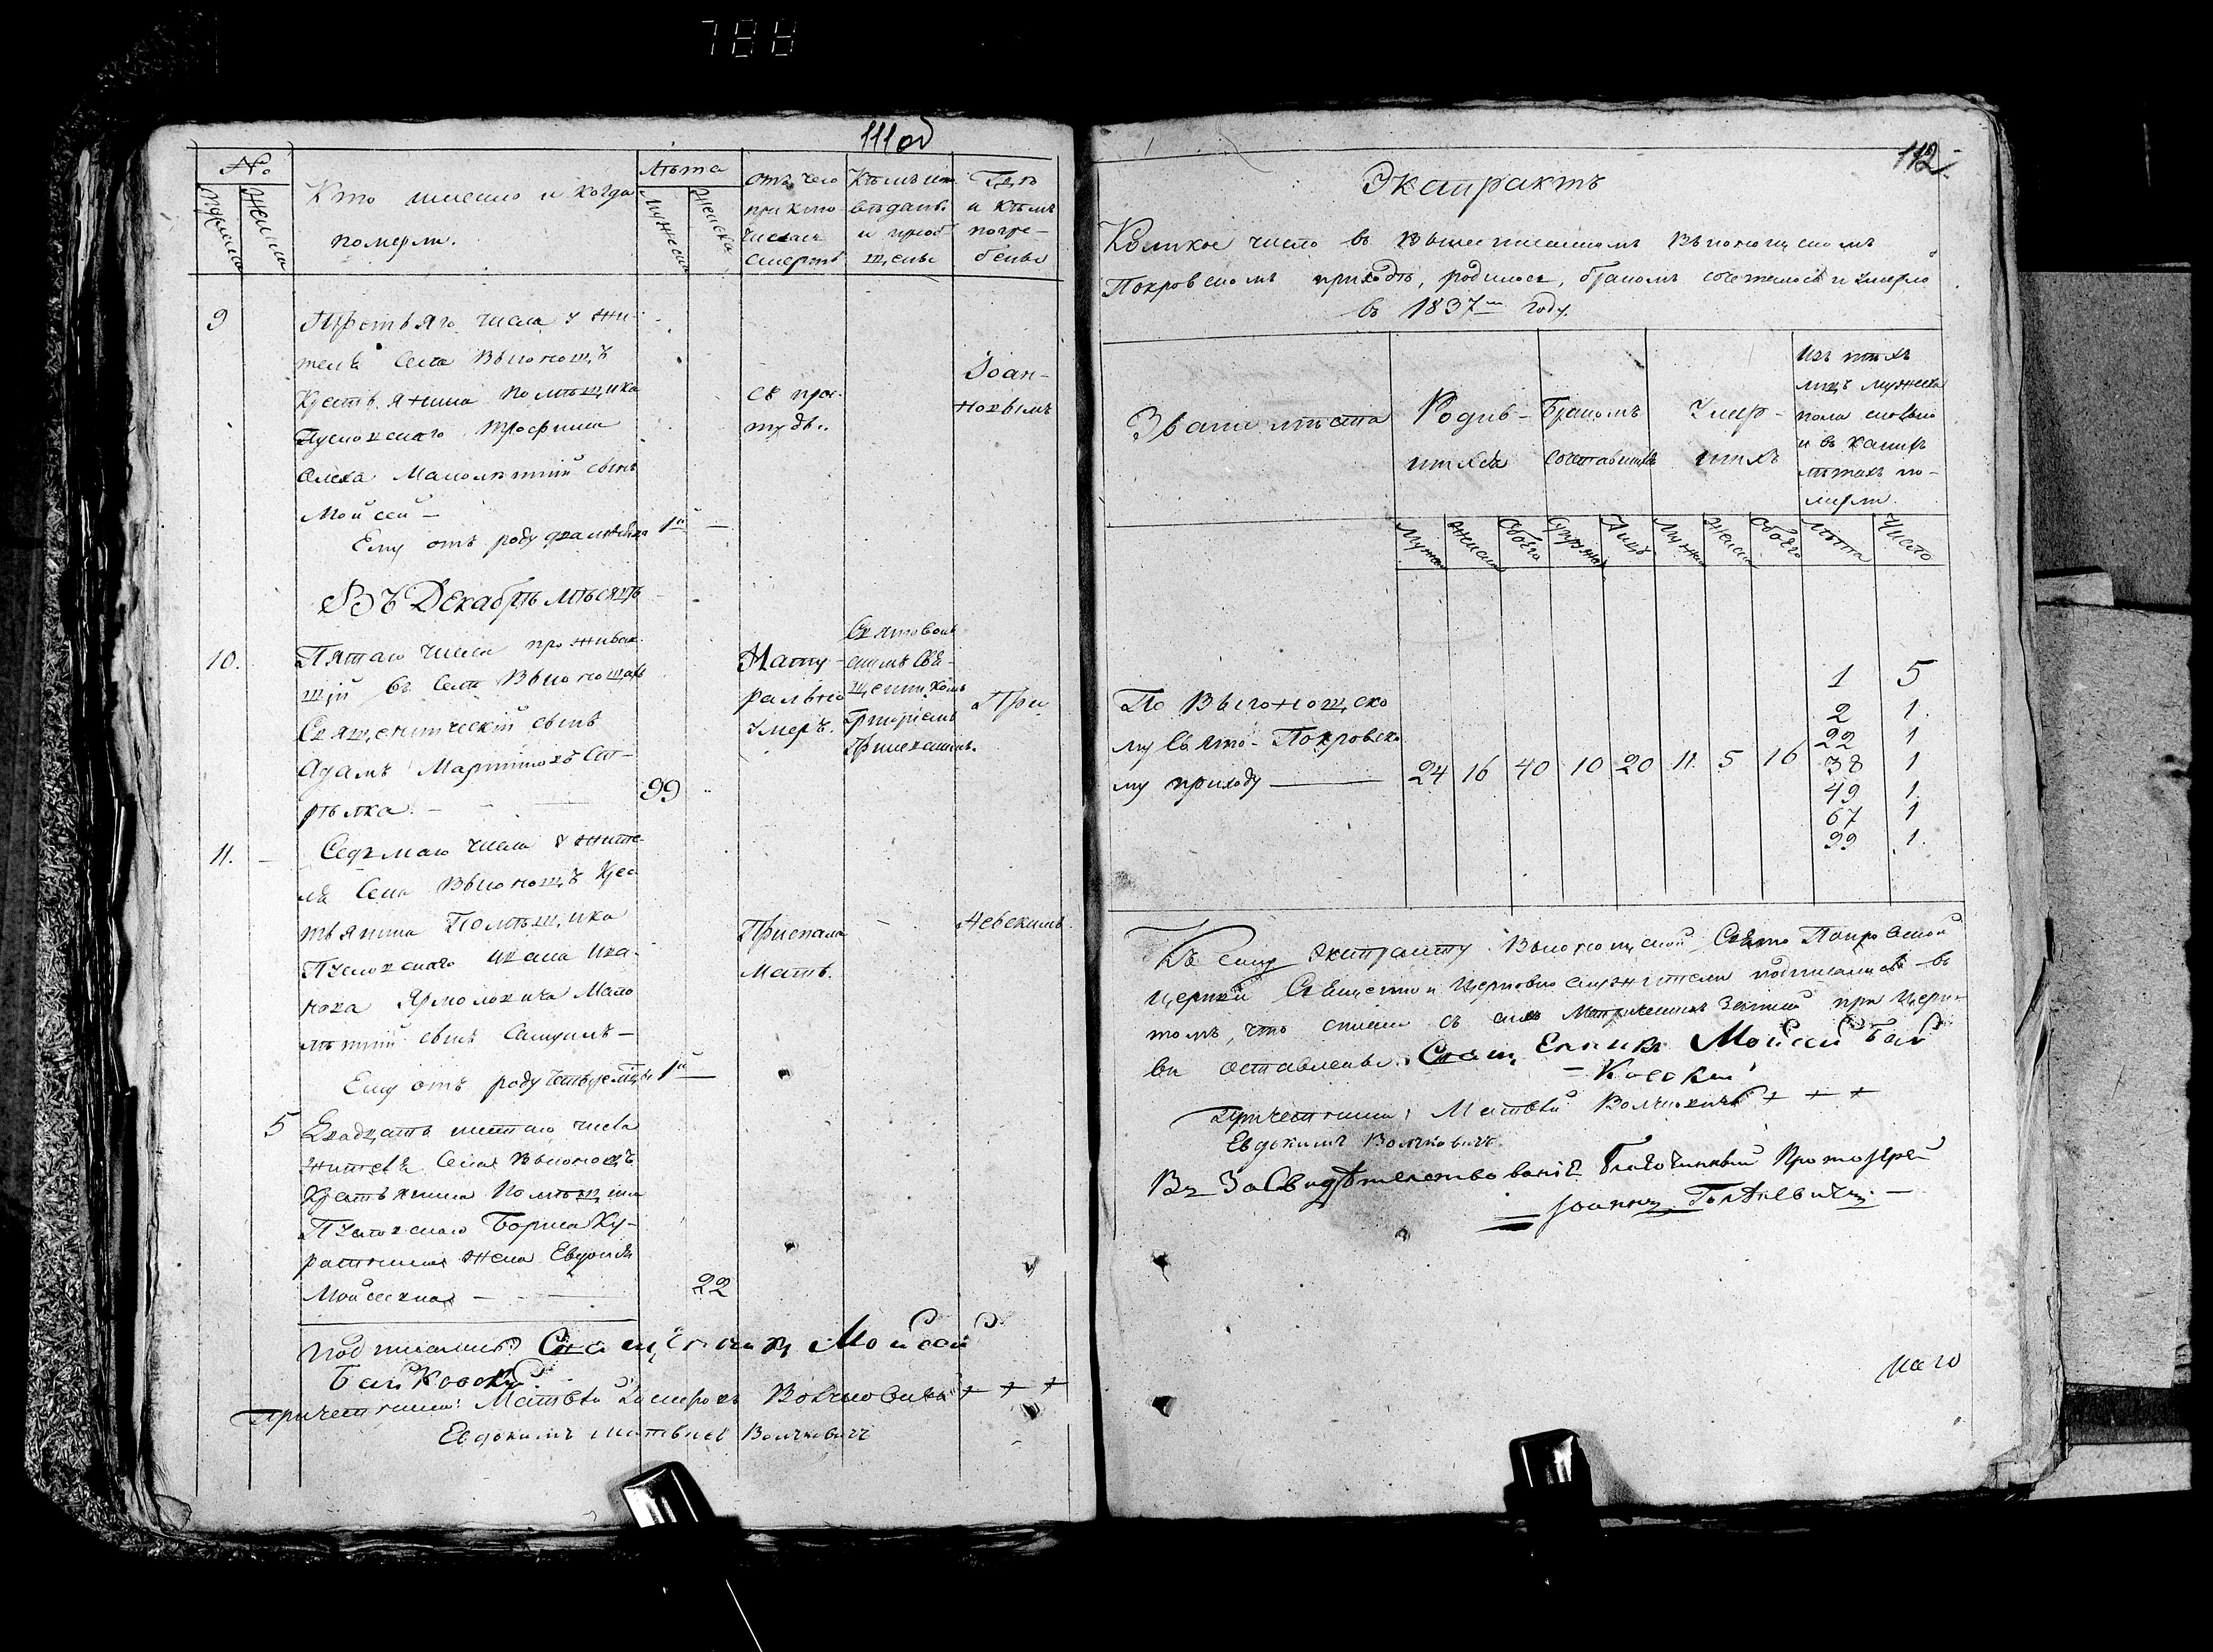 788
111 об
№
Мужеска
Женска
Кто именно и когда
померли.
Лѣта
Мужеска
Женска
отъ чего
приклю
чилась
смерть
Кѣмъ испо
вѣданы
и приоб
щены
Гдѣ
и кѣмъ
погре-
бены
9
Третьяго числа у жи-
теля Села Выгонощъ
Крестьянина помѣщика
Пусловскаго Трофима
Малолѣтній сынъ
Мойсей —
Ему отъ роду 1й —
съ прос-
туды.
Іоан-
новымъ
Въ Декабрѣ мѣсяцѣ
10.
Пятаго числа проживаю
щій въ Селѣ Выгонощахъ
Священническій сынъ
Адамъ Мартиновъ
99
Нату-
рально
умеръ.
Священ
никомъ
Григоріемъ
При
11.
Седьмаго числа у жите
ля Села Выгонощъ Крес
тьянина Помѣщика
Пусловскаго Ивана Ива-
нова Ярмоловича Мало
лѣтній сынъ Самуилъ —
Ему отъ роду 1й —
Приспала
Мать.
Невскимъ
5
Двадцать шестаго числа
жителя Села Выгонощъ
Крестьянина Помѣщика
Пусловскаго Бориса Ку-
жена Евдокія
Мойсеевна — — —
22
подписались: Священникъ Мойсей
Байковскій
Причетники: Матвей Волчковичъ + + +
Евдокимъ Матвѣевъ Волчковичъ
112.
Экстрактъ
Коликое число въ вышеписанномъ Выгонощскомъ
Покровскомъ приходѣ, родилось, бракомъ сочеталось и умерло
въ 1837м году.
Званіе мѣста
Родив-
шихся
Бракомъ
сочетавшихся
Умер-
шихъ
изъ тѣхъ
лицъ мужеска
пола сколько
и въ какихъ
лѣтахъ по-
мерли.
Мужска
Женска
Обоего
Супружн
Лицъ
Мужска
Женска
Обоего
Лѣта
Число
По Выгонощско
му Свято-Покровско
му приходу —
24 16 40 10 20 11 5 16
1 5
2 1.
22 1
38 1
49 1.
67 1
99 1.
Къ сему экстракту Выгонощской Свято Покровской
церкви Священно и Церковно служители подписались въ
томъ, что списки съ сихъ Метрическихъ Записей при Церк-
ви оставлены. Священникъ Мойсей Бай
— Ковскій
Причетники: Матвѣй Волчковичъ + + +
Евдокимъ Волчковичъ.
Въ Засвидѣтельствованіе Благочинный Протоіерей
— Іоаннъ —
наго